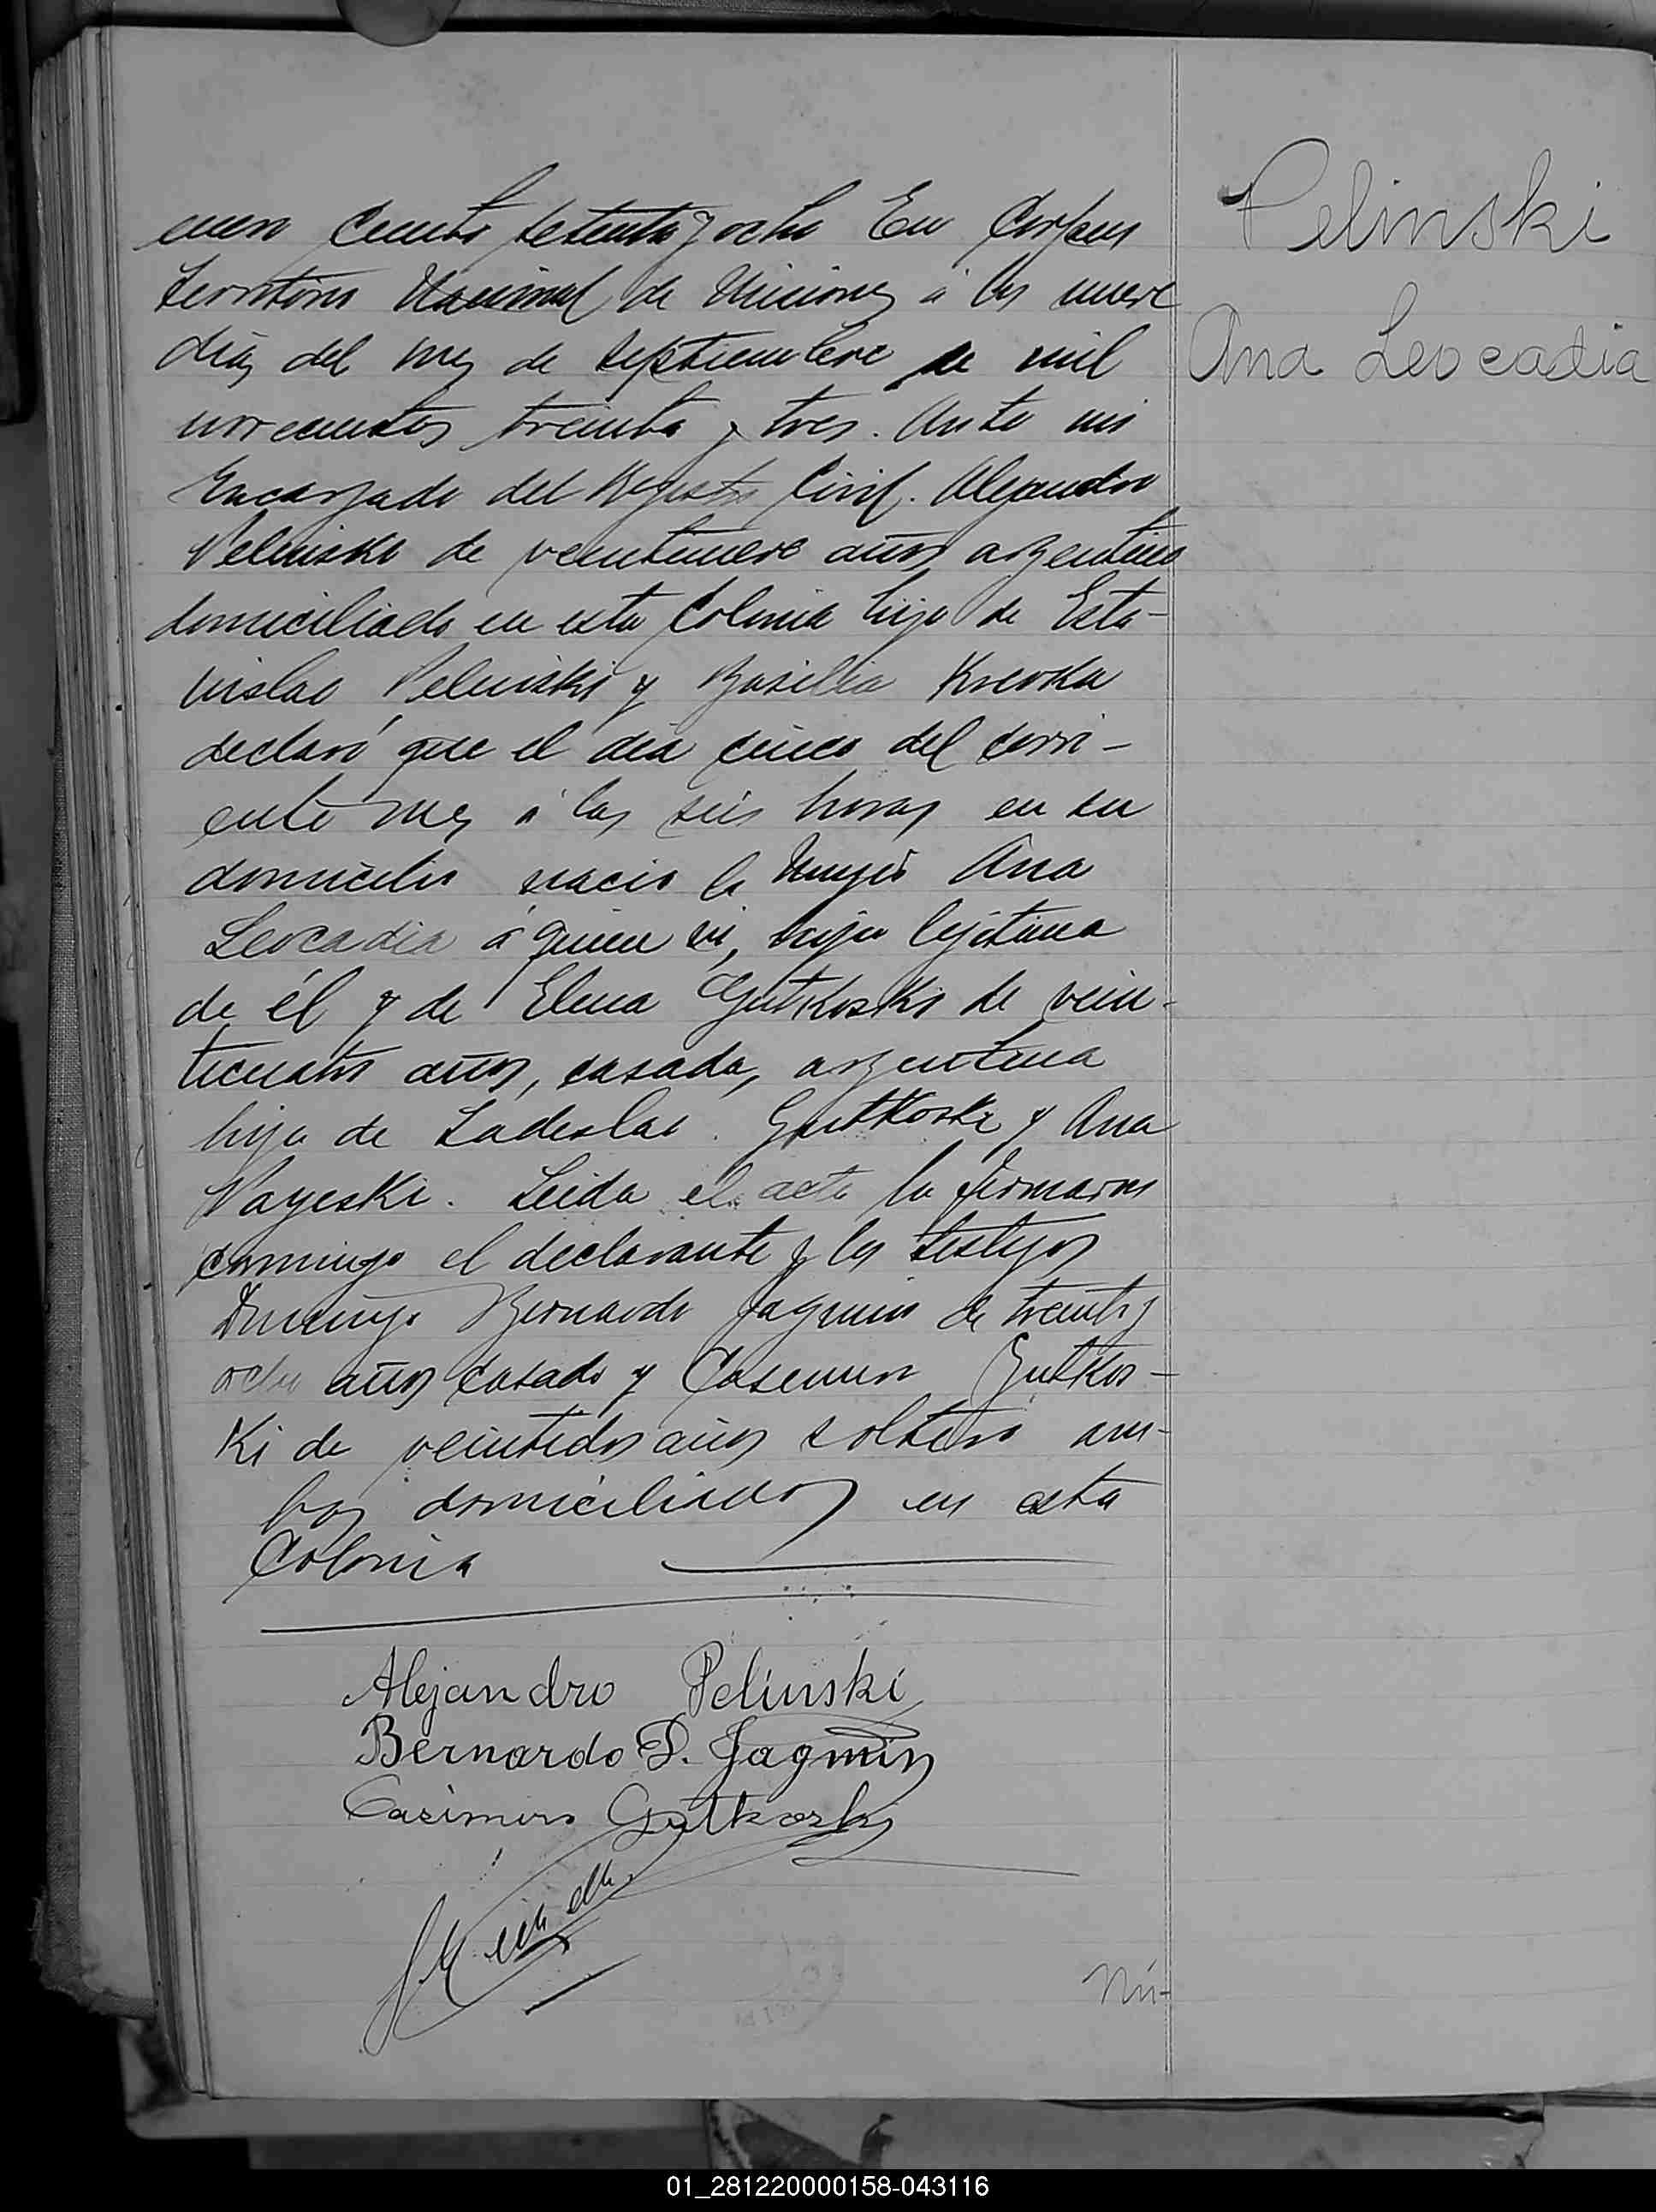 mero Ciento setenta y ocho En Corpus
Territorio Nacional de Misiones á los nueve
dias del mes de septiembre de mil
novecientos treinta y tres. Ante mi
Encargado del Registro Civil. Alejandro
Pelinski de veintinueve años argentino
domiciliado en esta Colonia hijo de Esta-
nislao Pelinski y Basilia
declaró que el dia cinco del corri-
ente mes á las seis horas en su
domicilio nació la mujer Ana
Leocadia á quien vi, hija lejitima
de él y de Elena Gutkoski de vein-
ticuatro años, casada, argentina
hija de Ladeslao Gutkoski y Ana
Leida el acta la firmaron
conmigo el declarante y los testigos
Domingo Bernardo Jagmin de treinta y
ocho años casado y Casemiro Gutkos-
ki de veintidos años soltero am-
bos domiciliados en esta
Colonia
Alejandro Pelinski
Bernardo D. Jagmin
Casimiro Gutkoski
Nú-
Pelinski
Ana Leocadia
01_281220000158-043116